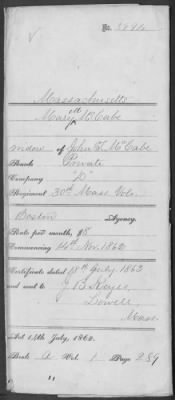 No.
Massachusetts
Mary McCabe
widow of John F. McCabe
Rank Private
Company "D"
Regiment 30th Mass Vols.
Boston Agency.
Rate per month, $8
Commencing 14th Nov. 1862
Certificate dated 18th July, 1863
and sent to J. B. Keyes
Lowell
Mass.
Act 14th July, 1862.
Book A Vol. 1 Page 289